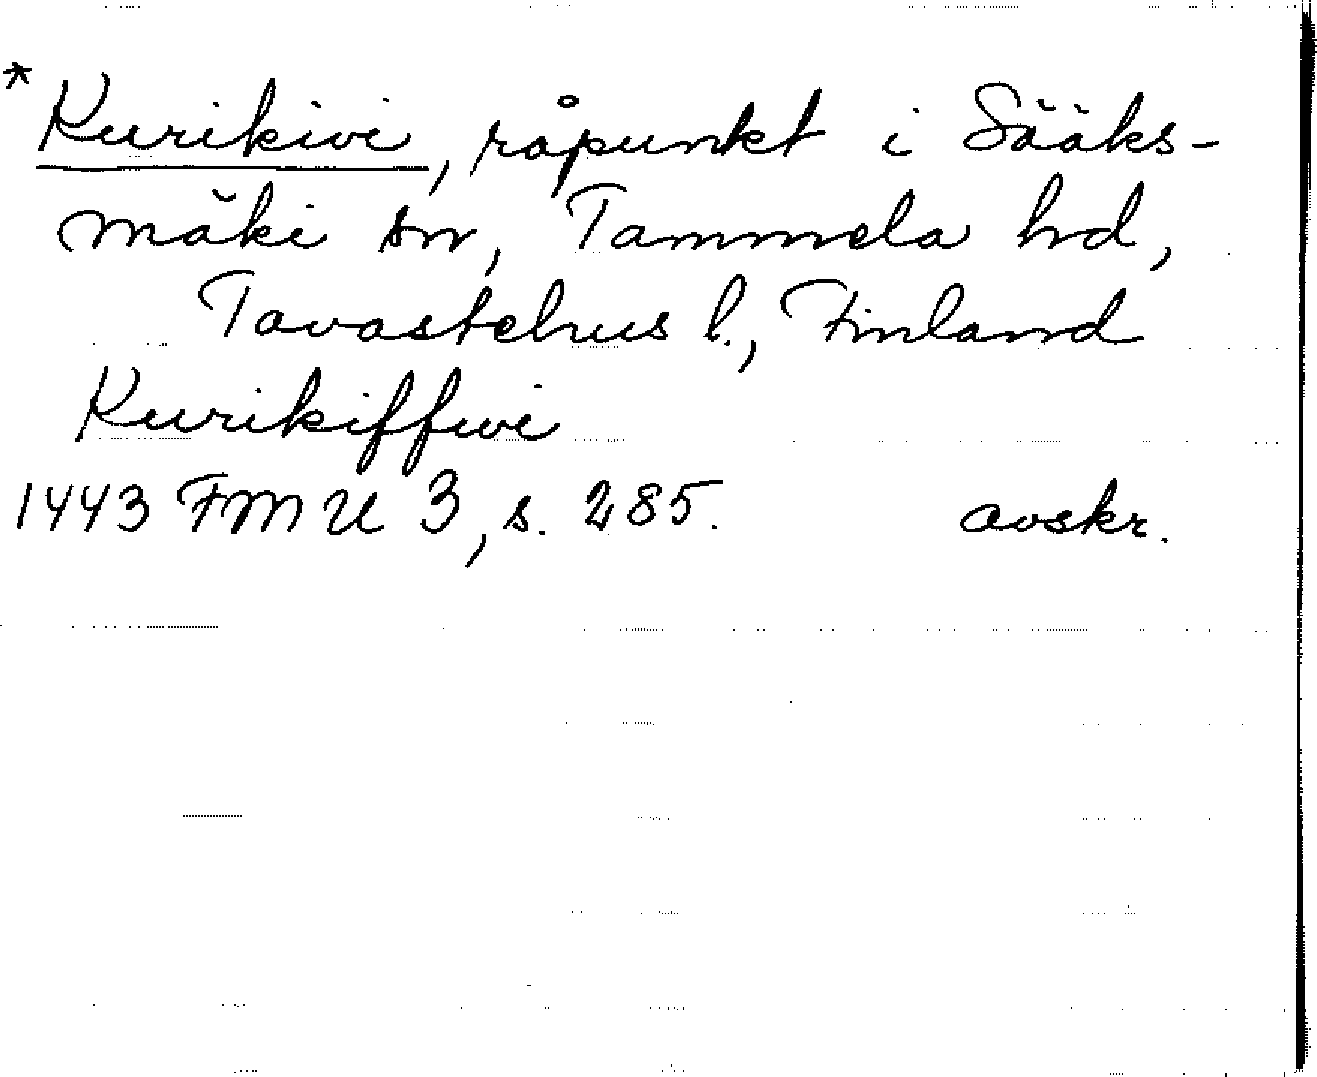 *Kurikivi, råpunkt i Sääks-
mäki sn, Tammela hd,
Tavastehus l., Finland
Kurikiffwi
1443 FMU 3, s. 285. avskr.